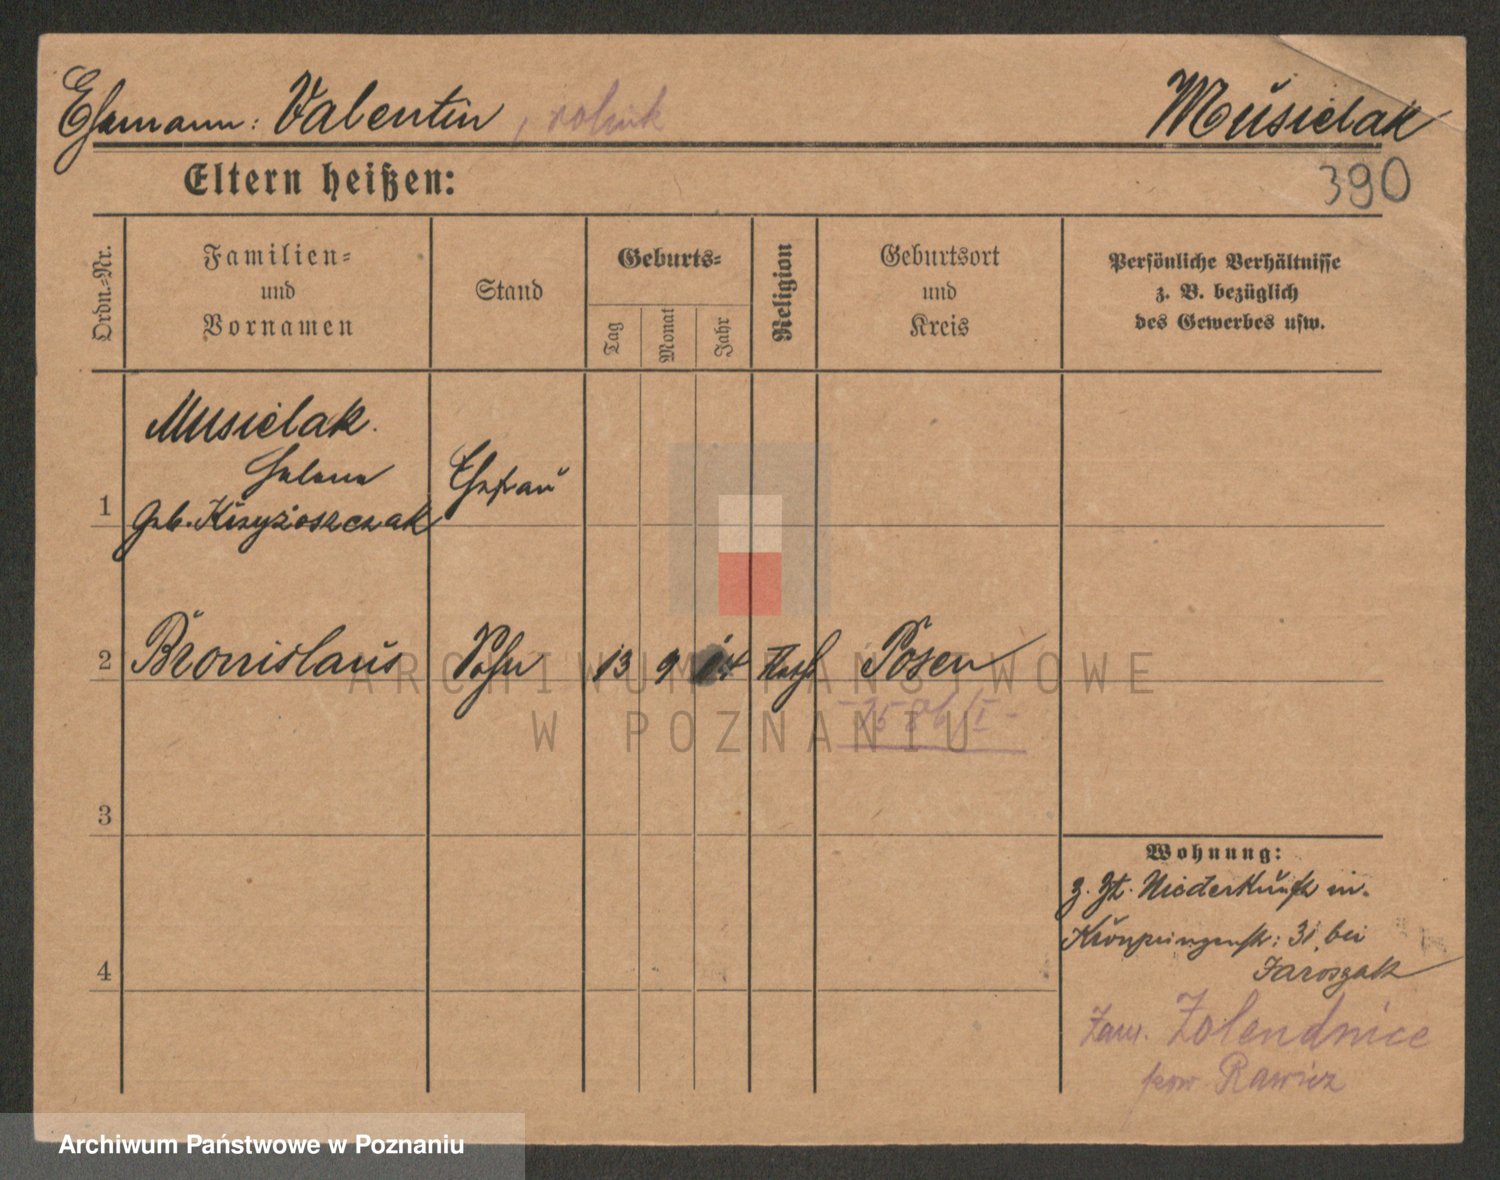 Ehemann: Valentin, rolnik Musielak
390
Eltern heißen:
Ordn.-Nr.
Familien-
und
Vornamen
Stand
Geburts-
Tag
Monat
Jahr
Religion
Geburtsort
und
Kreis
Persönliche Verhältnisse
z. B. bezüglich
des Gewerbes usw.
Musielak.
Helene
1 geb. Krzyżoszczak Ehefrau
2 Bronislaus Sohn 13 9 14 Kath Posen
3
4
Wohnung:
z. Zt. Niederkunft in.
Kronprinzenstr: 31, bei
Jaroszak
Zam. Zolendnice
pow Rawicz
ARCHIWUM PAŃSTWOWE
W POZNANIU
Archiwum Państwowe w Poznaniu